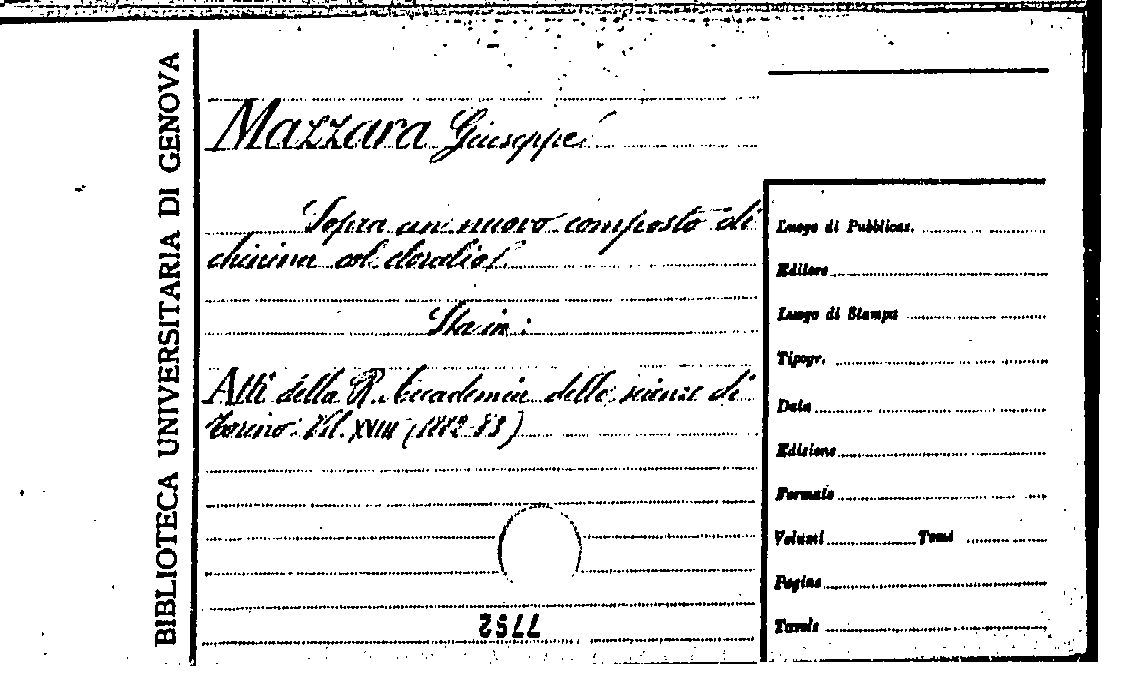 BIBLIOTECA UNIVERSITARIA DI GENOVA
Mazzara Giuseppe
Sopra un nuovo composto di
chinina col cloralio
Sta in:
Atti della R. Accademia delle scienze di
Torino. Vol. XVIII (1882-83)
7752
Luogo di Pubblicaz.
Editore
Luogo di Stampa
Tipogr.
Data
Edizione
Formato
Volumi Tomi
Pagine
Tavole